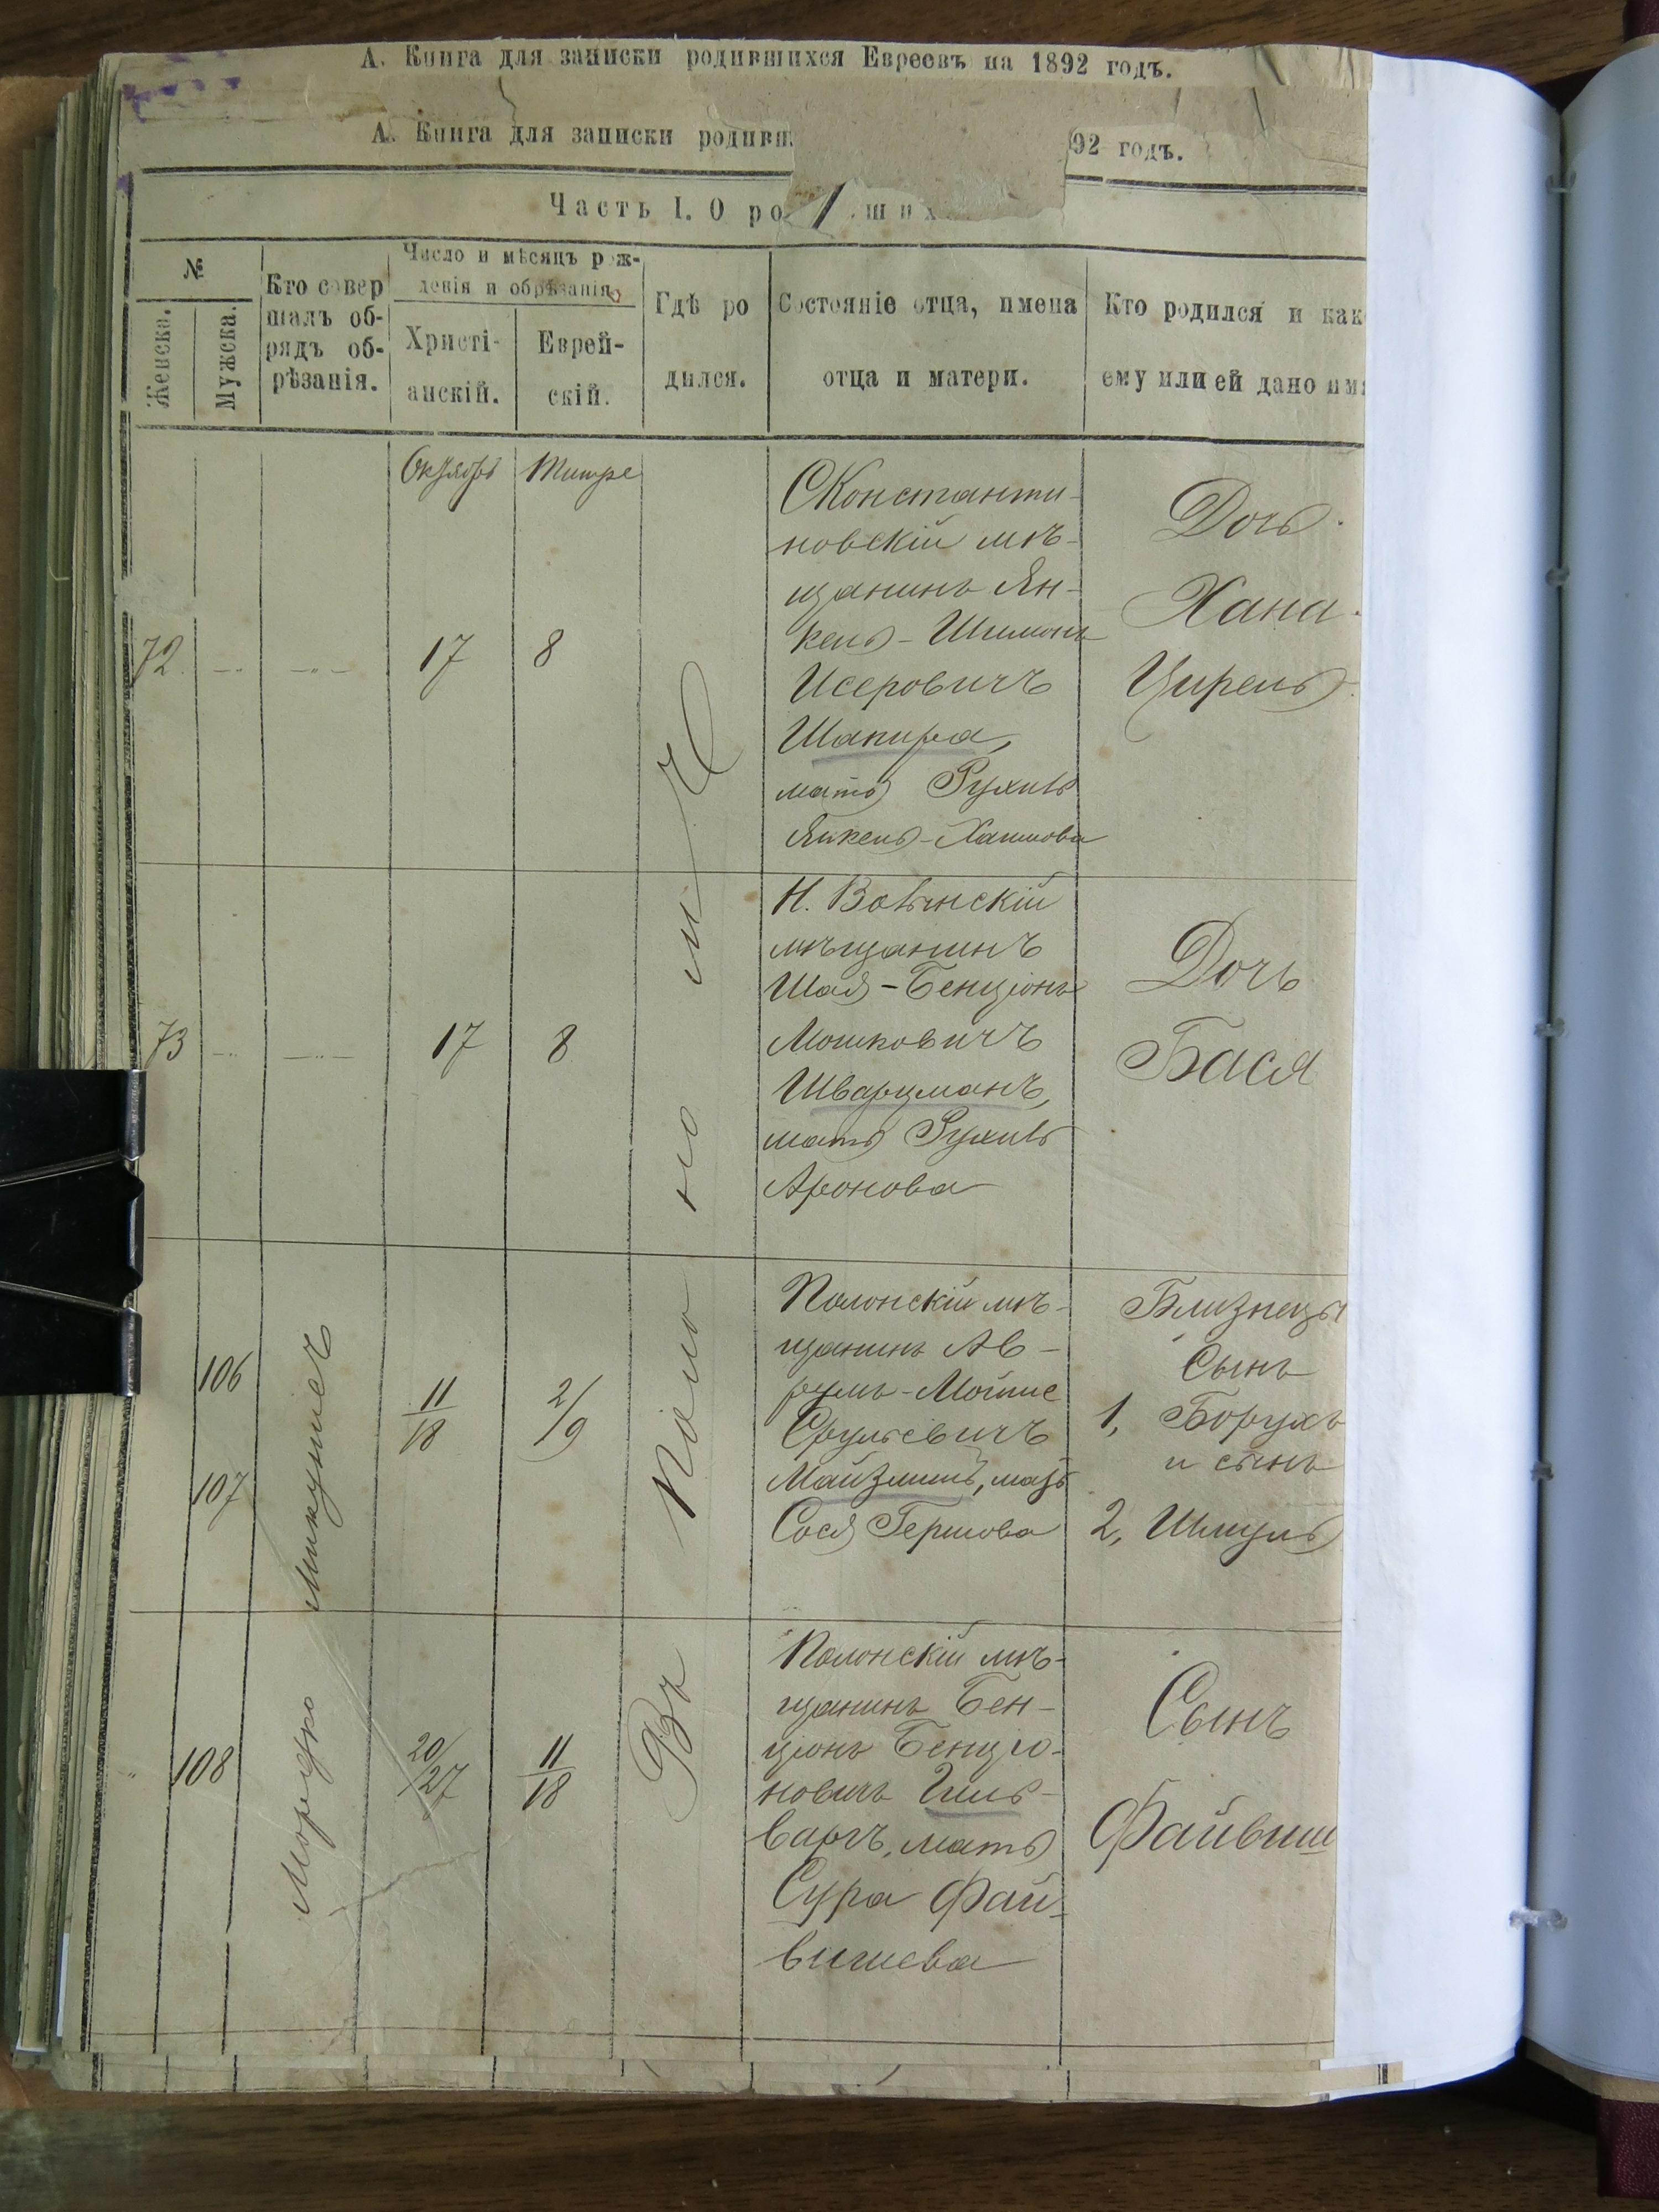 А. Книга для записки родившихся Евреевъ на 1892 годъ.
А. Книга для записки родивш
92 годъ.
Часть I. О ро
ших
№
Женска.
Мужска.
Кто совер
шалъ об-
рядъ об-
рѣзанія.
Число и мѣсяцъ рож-
денія и обрѣзанія
Христі-
анскій.
Еврей-
скій.
Гдѣ ро
дился.
Состояніе отца, имена
отца и матери.
Кто родился и как
ему или ей дано имя
Октябрь
Тишре
72
17
8
СКонстанти-
новскій мѣ-
щанинъ Ян-
кель-Шимонъ
Исеровичъ
Шапира,
мать Рухля
Янкель-Хаимова
Дочь
Хана
Цирель
73
17
8
Н. Волынскій
мѣщанинъ
Шая-Бенціонъ
Мошковичъ
Шварцманъ,
мать Рухля
Аронова
Дочь
Бася
106
107
11/18
2/9
Полонскій мѣ-
щанинъ Ав-
румъ-Мойше
Срулевичъ
Сося Гершова
Близнецы
Сынъ
1, Борухъ
и сынъ
2, Шмуль
108
Мордко
20/27
11/18
Въ
Поло
но
Полонскій мѣ-
щанинъ Бен-
ціонъ Бенціо-
новичъ Гиль-
варгъ, мать
Сура Фай-
вишева
Сынъ
Файвиш